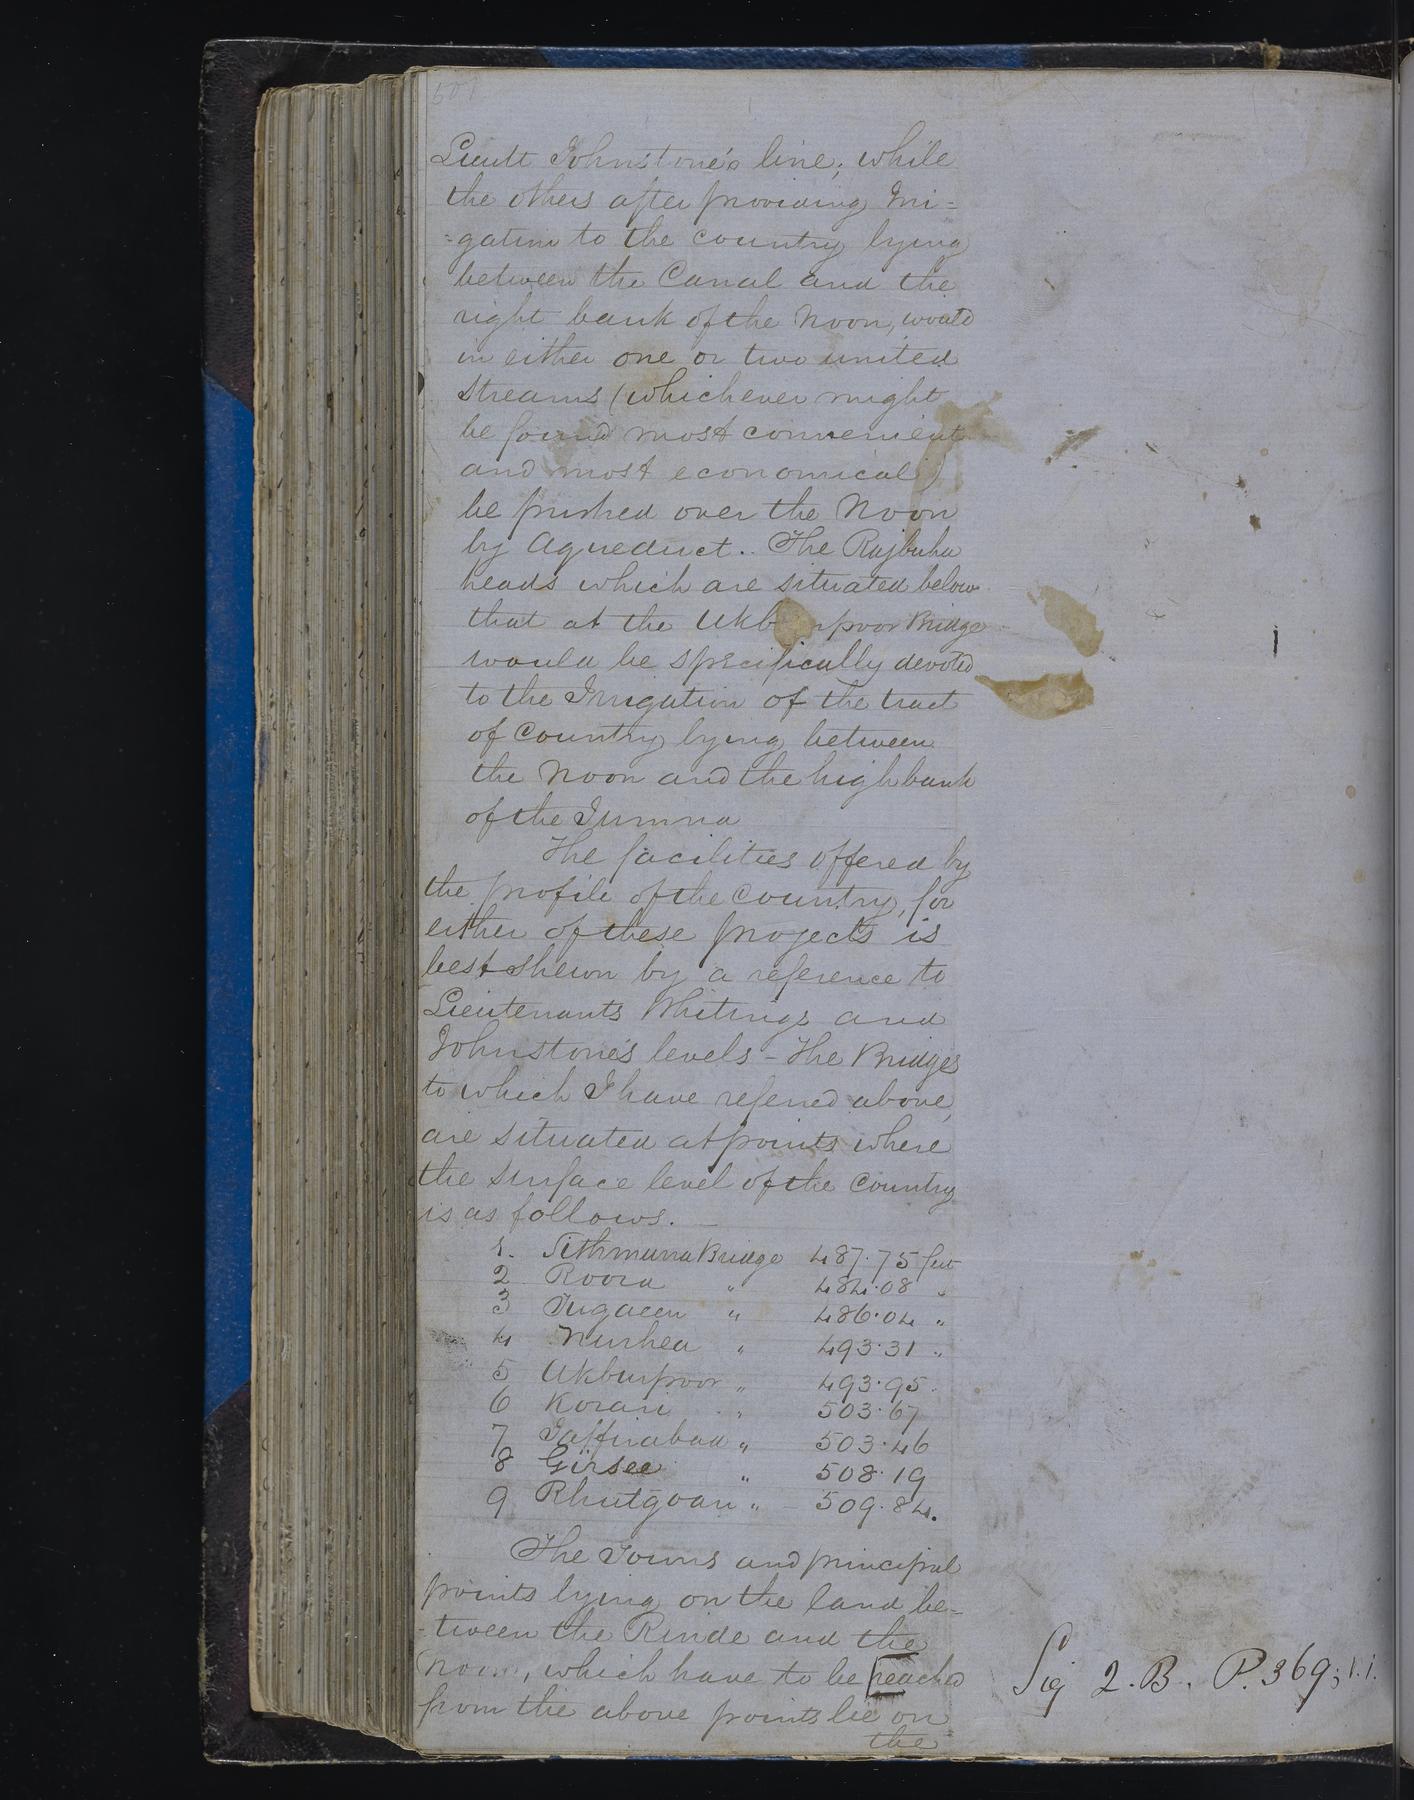 507
Lieutt Johnstone's line; while
the others after providing Irri=
=gation to the country lying
between the Canal and the
right bank of the Noon, would
in either one or two united
streams (whichever might
be found most convenient
and most economical)
be pushed over the Noon
by Aqueduct.. The Rajbuha
heads which are situated below
that at the Ukb rpoor Bridge
would be specifically devoted
to the Irrigation of the tract
of Country lying between
the Noon and the high bank
of the Jumna
The facilities offered by
the profile of the Country, for
either of these projects is
best shewn by a reference to
Lieutenants Whitings and
Johnstone's levels - The Bridges
to which I have referred above,
are situated at points where
the surface level of the Country
is as follows. -
1. Sithmurra Bridge 487.75 feet
2 Roora " 484.08 "
3 Jugaeen " 486.04 "
4 Nurhea " 493.31 "
5 Ukburpoor " 493.95.
6 Korari " 503.67
7 Jaffirabad " 503.46
8 Girsee " 508.19
9 Rhutgoan " - 509.84.
The Towns and principal
points lying on the land be-
-tween the Rinde and the
Noon, which have to be [reached
from the above points lie on
the
Sig 2. B. P. 369; 1.1.